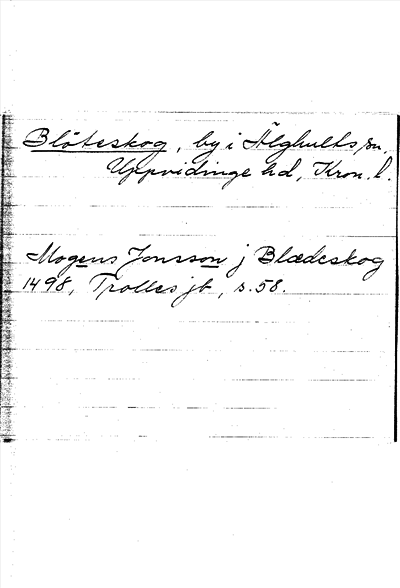 Blöteskog, by i Älghults sn.
Uppvidinge hd, Kron. l.
Mogens Jonsson j Blædeskog
1498, Trolles jb, s. 58.